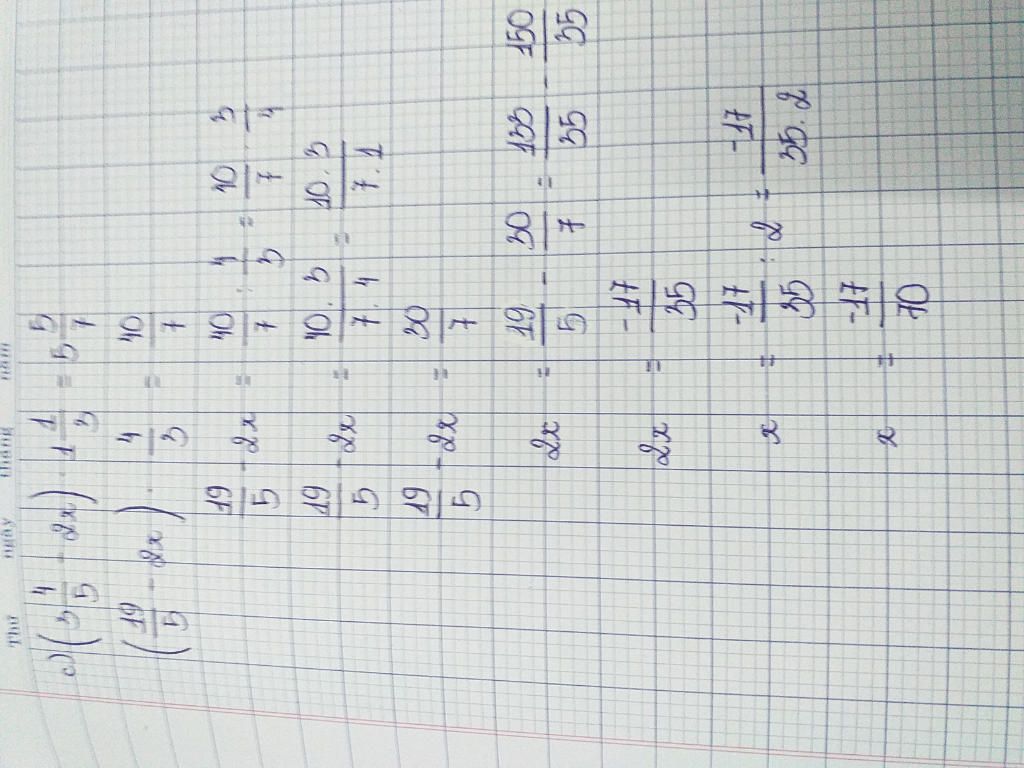 Thứ ngày tháng năm
c) (3 4/5 - 2x) . 1 1/3 = 5 5/7
(19/5 - 2x) . 4/3 = 40/7
19/5 - 2x = 40/7 : 4/3 = 40/7 . 3/4
19/5 - 2x = 40.3/7.4 = 10.3/7.1
19/5 - 2x = 30/7
2x = 19/5 - 30/7 = 133/35 - 150/35
2x = -17/35
x = -17/35 : 2 = -17/35.2
x = -17/70